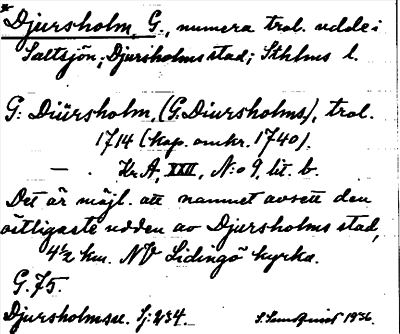 Djursholm, G., numera trol. udde i
Saltsjön; Djursholms stad; Sthlms l.
G: Diürsholm, (G. Diursholms), trol.
1714 (kop. omkr. 1740).
— . Kr. A, XXII, N:o 9, lit. b.
Det är möjl. att namnet avsett den
östligaste udden av Djursholms stad,
4½ km. NV Lidingö kyrka.
G. 75.
Djursholmssl. Sj: 234. S. Sundquist 1936.